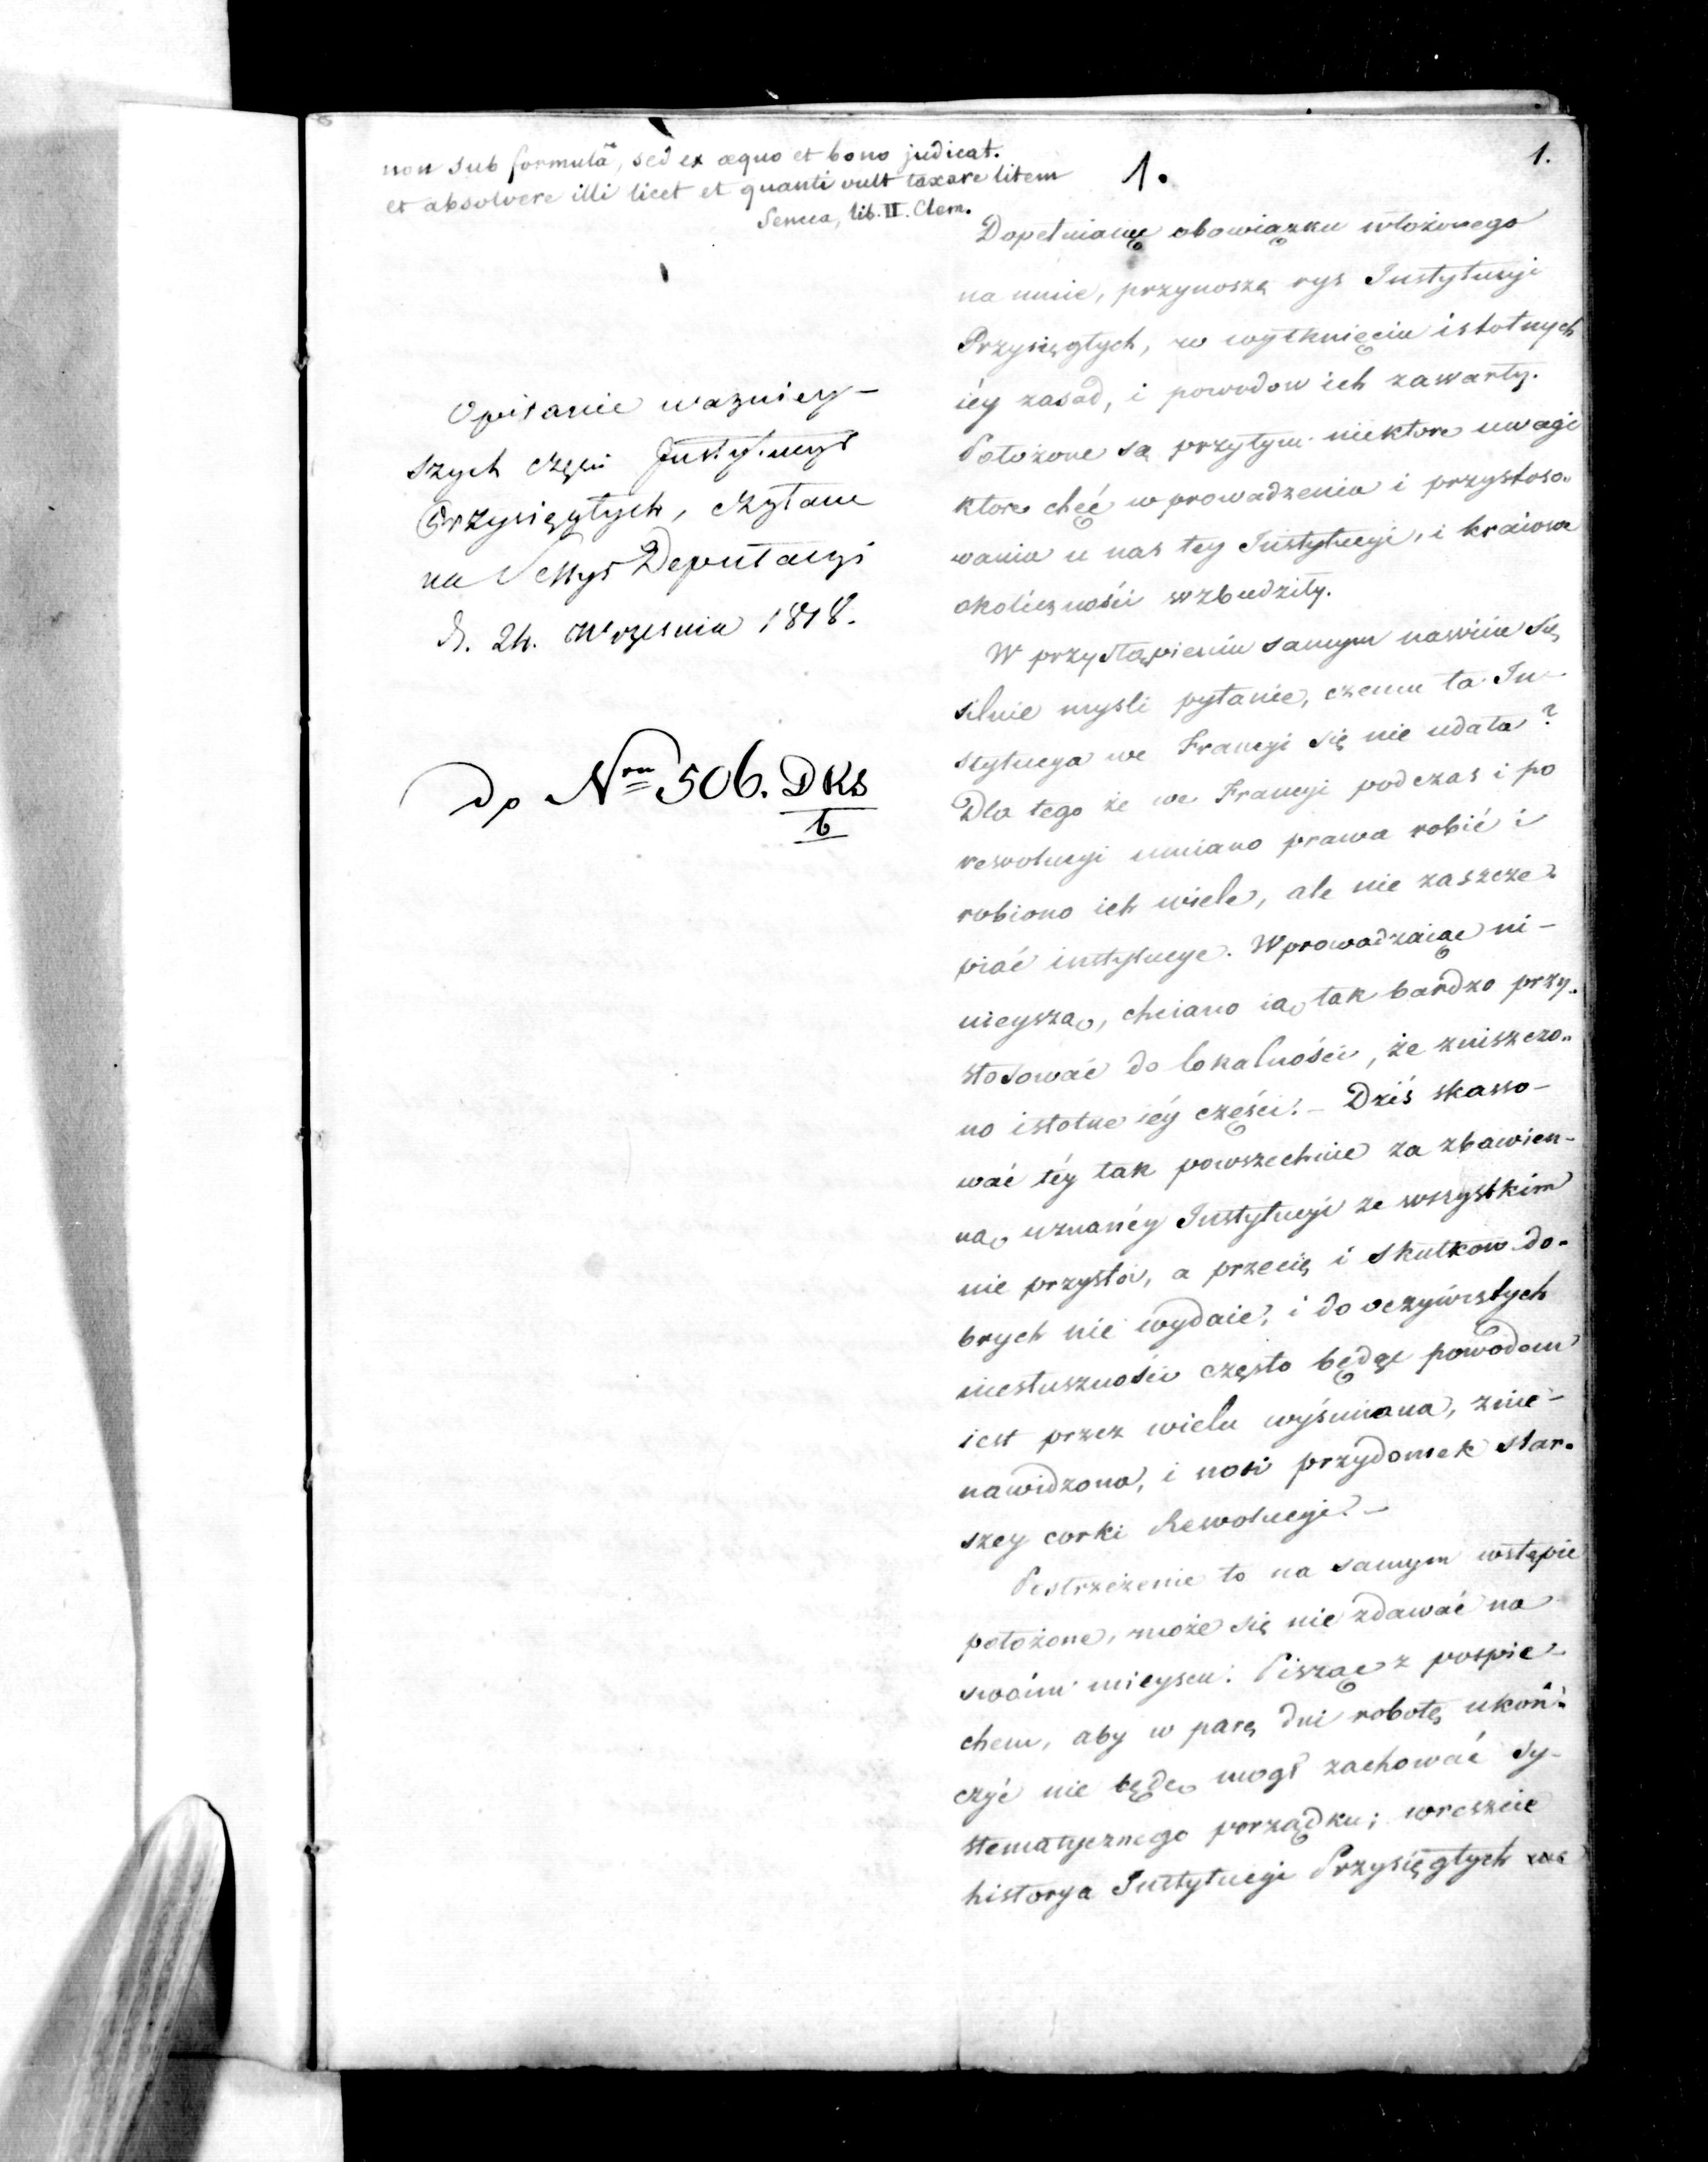 non sub formulâ, sed ex æquo et bono judicat.
et absolvere illi licet et quanti vult taxare litem
Seneca, lib. II. Clem.
1.
1.
Opisanie wazniey-
szych części Instytucyi
Przysięgłych, czytane
na Sessyi Deputacyi
d. 24. Września 1818.
do Nru 506. DKS
b
Dopełniaiąc obowiązku włożonego
na mnie, przynoszę rys Instytucyi
Przysięgłych, w wytknięciu istotnych
iéy zasad, i powodow ich zawarty.
Położone są przytym niektore uwagi
ktore chęć wprowadzenia i przystoso-
wania u nas tey Instytucyi, i kraiowe
okoliczności wzbudziły.
W przystąpieniu samym nawiia się
silnie mysli pytanie, czemu ta In-
stytucya we Francyi się nie udała?
Dla tego że we Francyi podczas i po
rewolucyi umiano prawa robić i
robiono ich wiele, ale nie zaszcze-
piać instytucye. Wprowadzaiąc ni-
nieyszą, chciano ią tak bardzo przy-
stosować do lokalności, że zniszczo-
no istotne iéy części. - Dziś skasso-
wać téy tak powszechnie za zbawien-
ną uznanéy Instytucyi ze wszystkim
nie przystoi, a przecię i skutkow do-
brych nie wydaie, i do oczywistych
niesłuszności często będąc powodem
iest przez wielu wyśmiana, znie-
nawidzona, i nosi przydomek star-
szey corki Rewolucyi. -
Postrzeżenie to na samym wstępie
położone, może się nie zdawać na
swoim mieyscu. Pisząc z pospie-
chem, aby w parę dni robotę ukoń-
czyć nie będę mogł zachować sy-
stematycznego porządku; wreszcie
historya Instytucyi Przysięgłych we